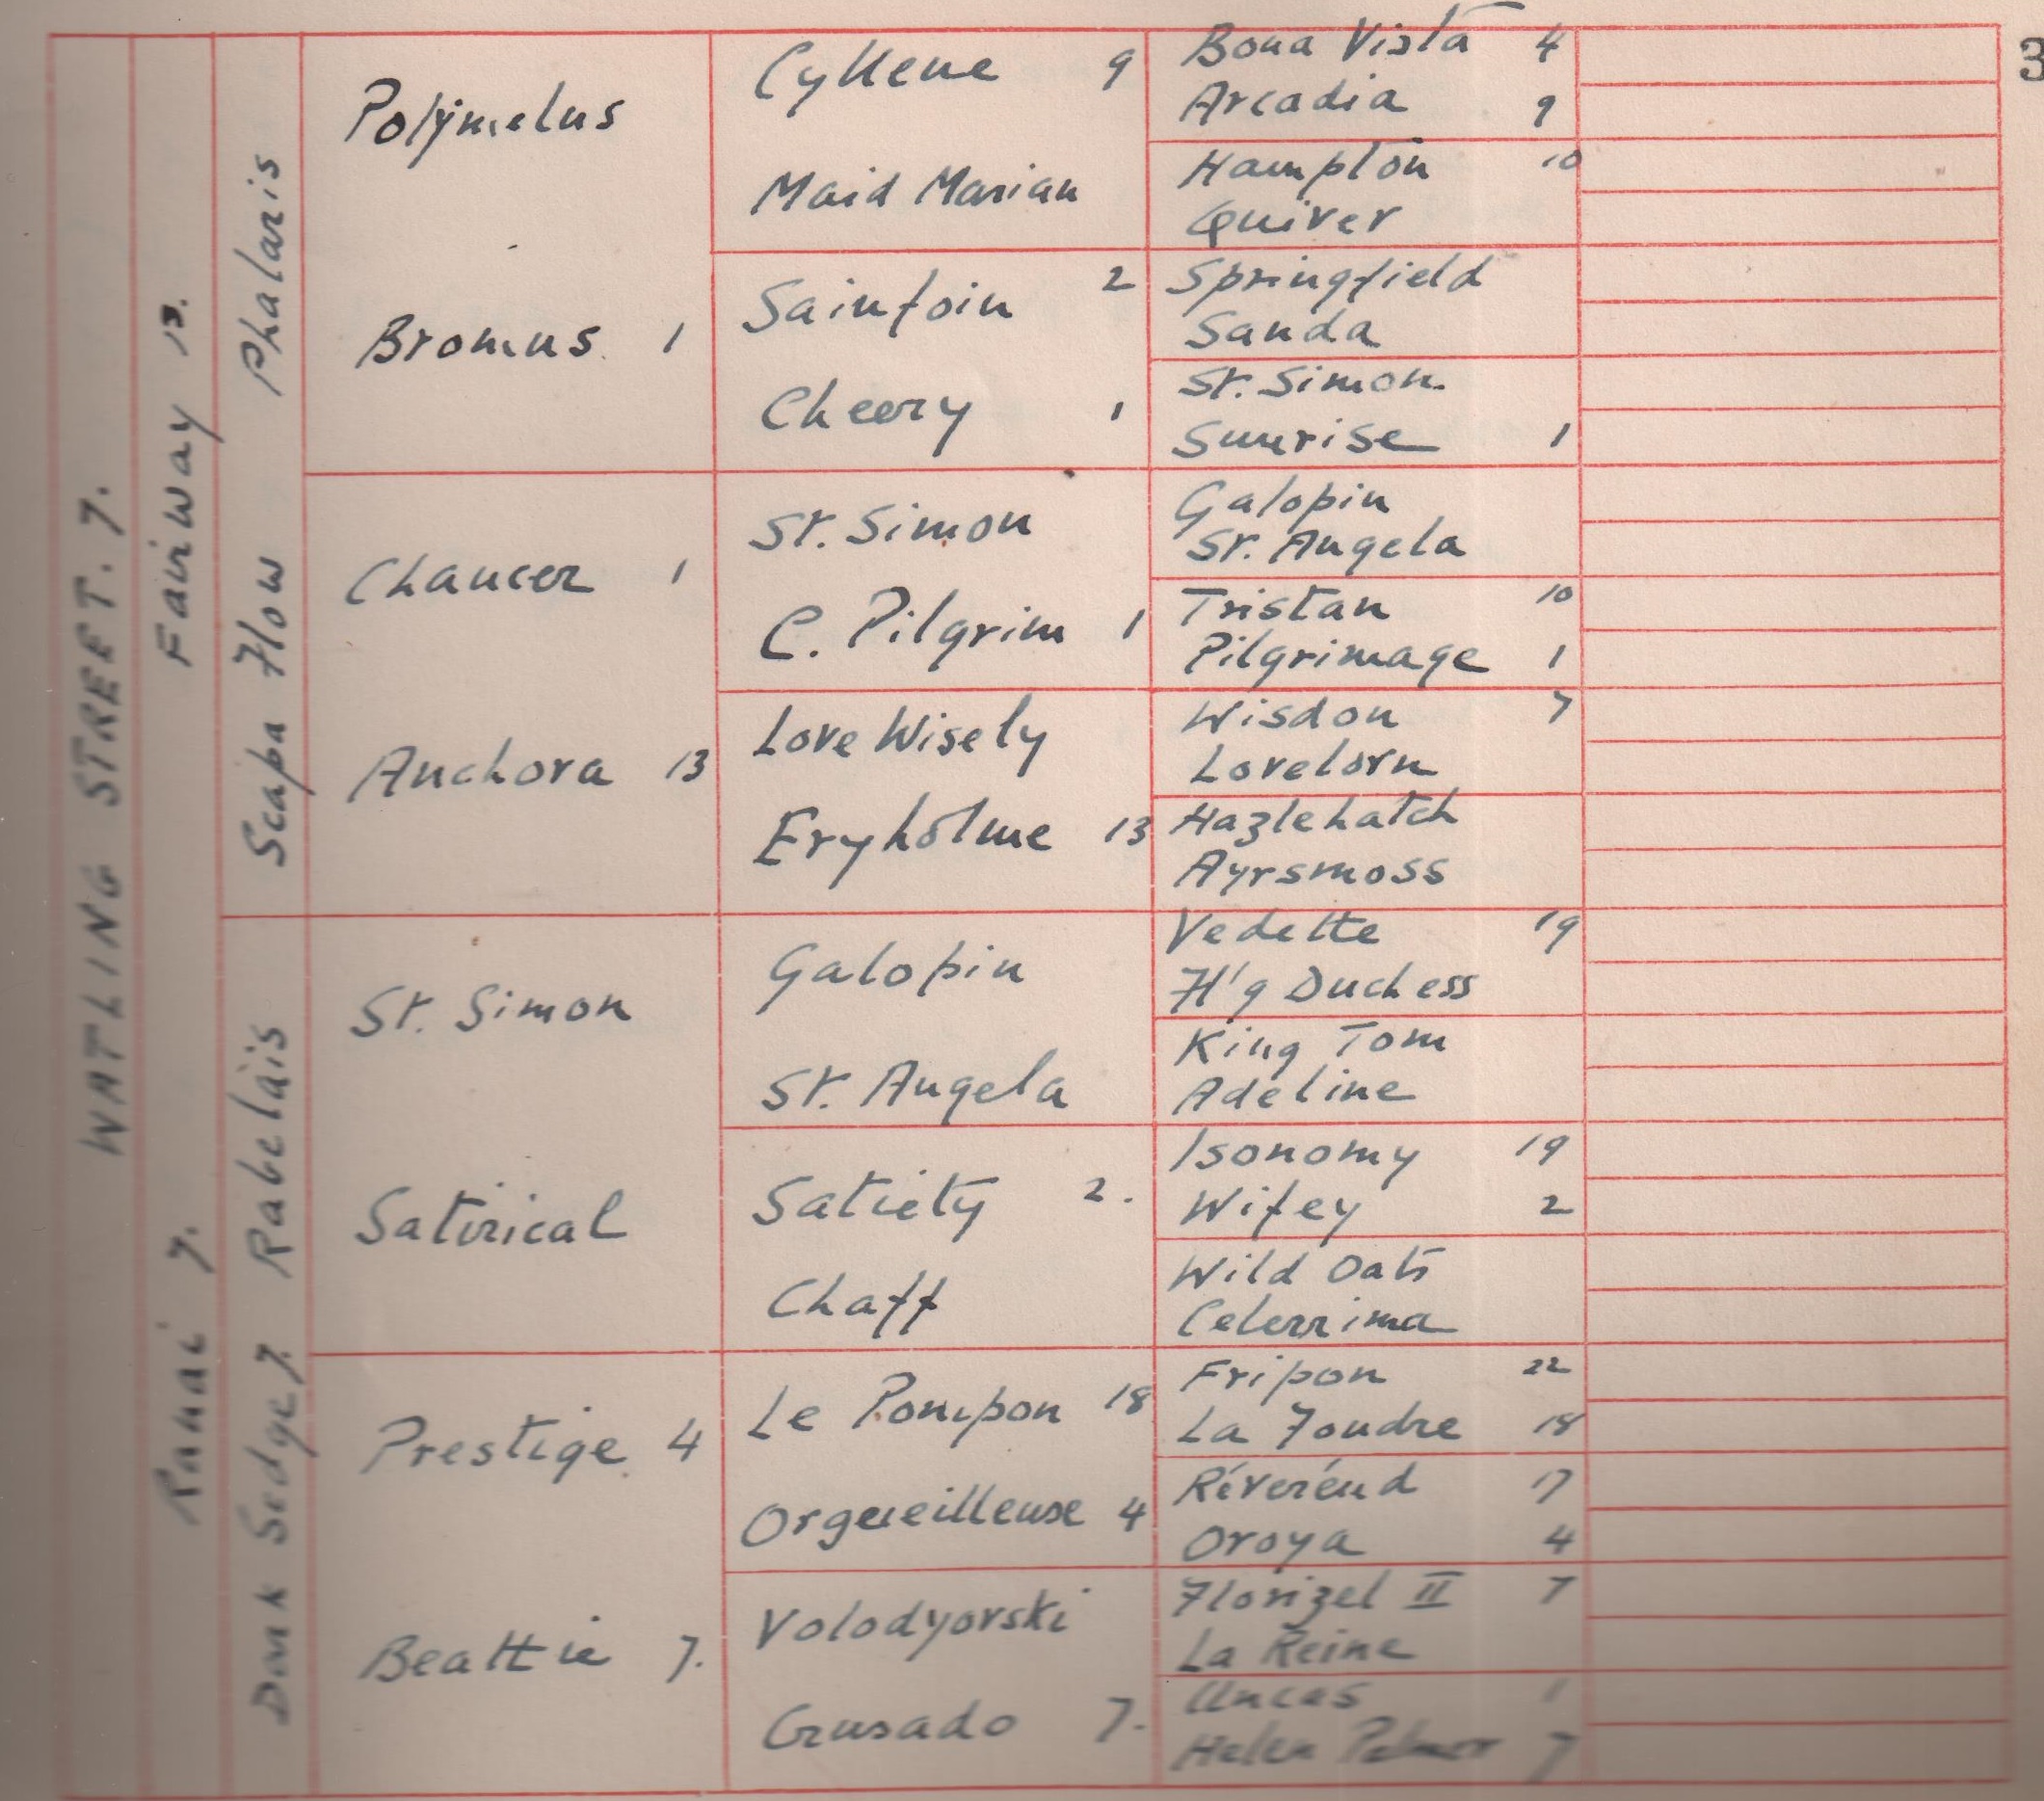 3
WATLING STREET. 7.
Fairway 13.
Ranai 7.
Phalaris
Scapa Flow
Rabelais
Dark Sedge 7.
Polymelus
Bromus. 1
Chaucer 1
Anchora 13
St. Simon
Satirical
Prestige 4
Beattie 7.
Cyllene 9
Maid Marian
Sainfoin 2
Cheery 1
St. Simon
C. Pilgrim 1
Love Wisely
Eryholme 13
Galopin
St. Angela
Satiety 2.
Chaff
Le Pompon 18
Orgueilleuse 4
Volodyovski
Crusado 7.
Bona Vista 4
Arcadia 9
Hampton 10
Quiver
Springfield
Sanda
St. Simon.
Sunrise 1
Galopin
St. Angela
Tristan 10
Pilgrimage 1
Wisdon 7
Lovelorn
Hazlehatch
Ayrsmoss
Vedette 19
Fl'g Duchess
King Tom
Adeline
Isonomy 19
Wifey 2
Wild Oats
Celerrima
Fripon 22
La Foudre 18
Révérénd 17
Oroya 4
Florizel II 7
La Reine
Uncas 1
Helen Palmer 7